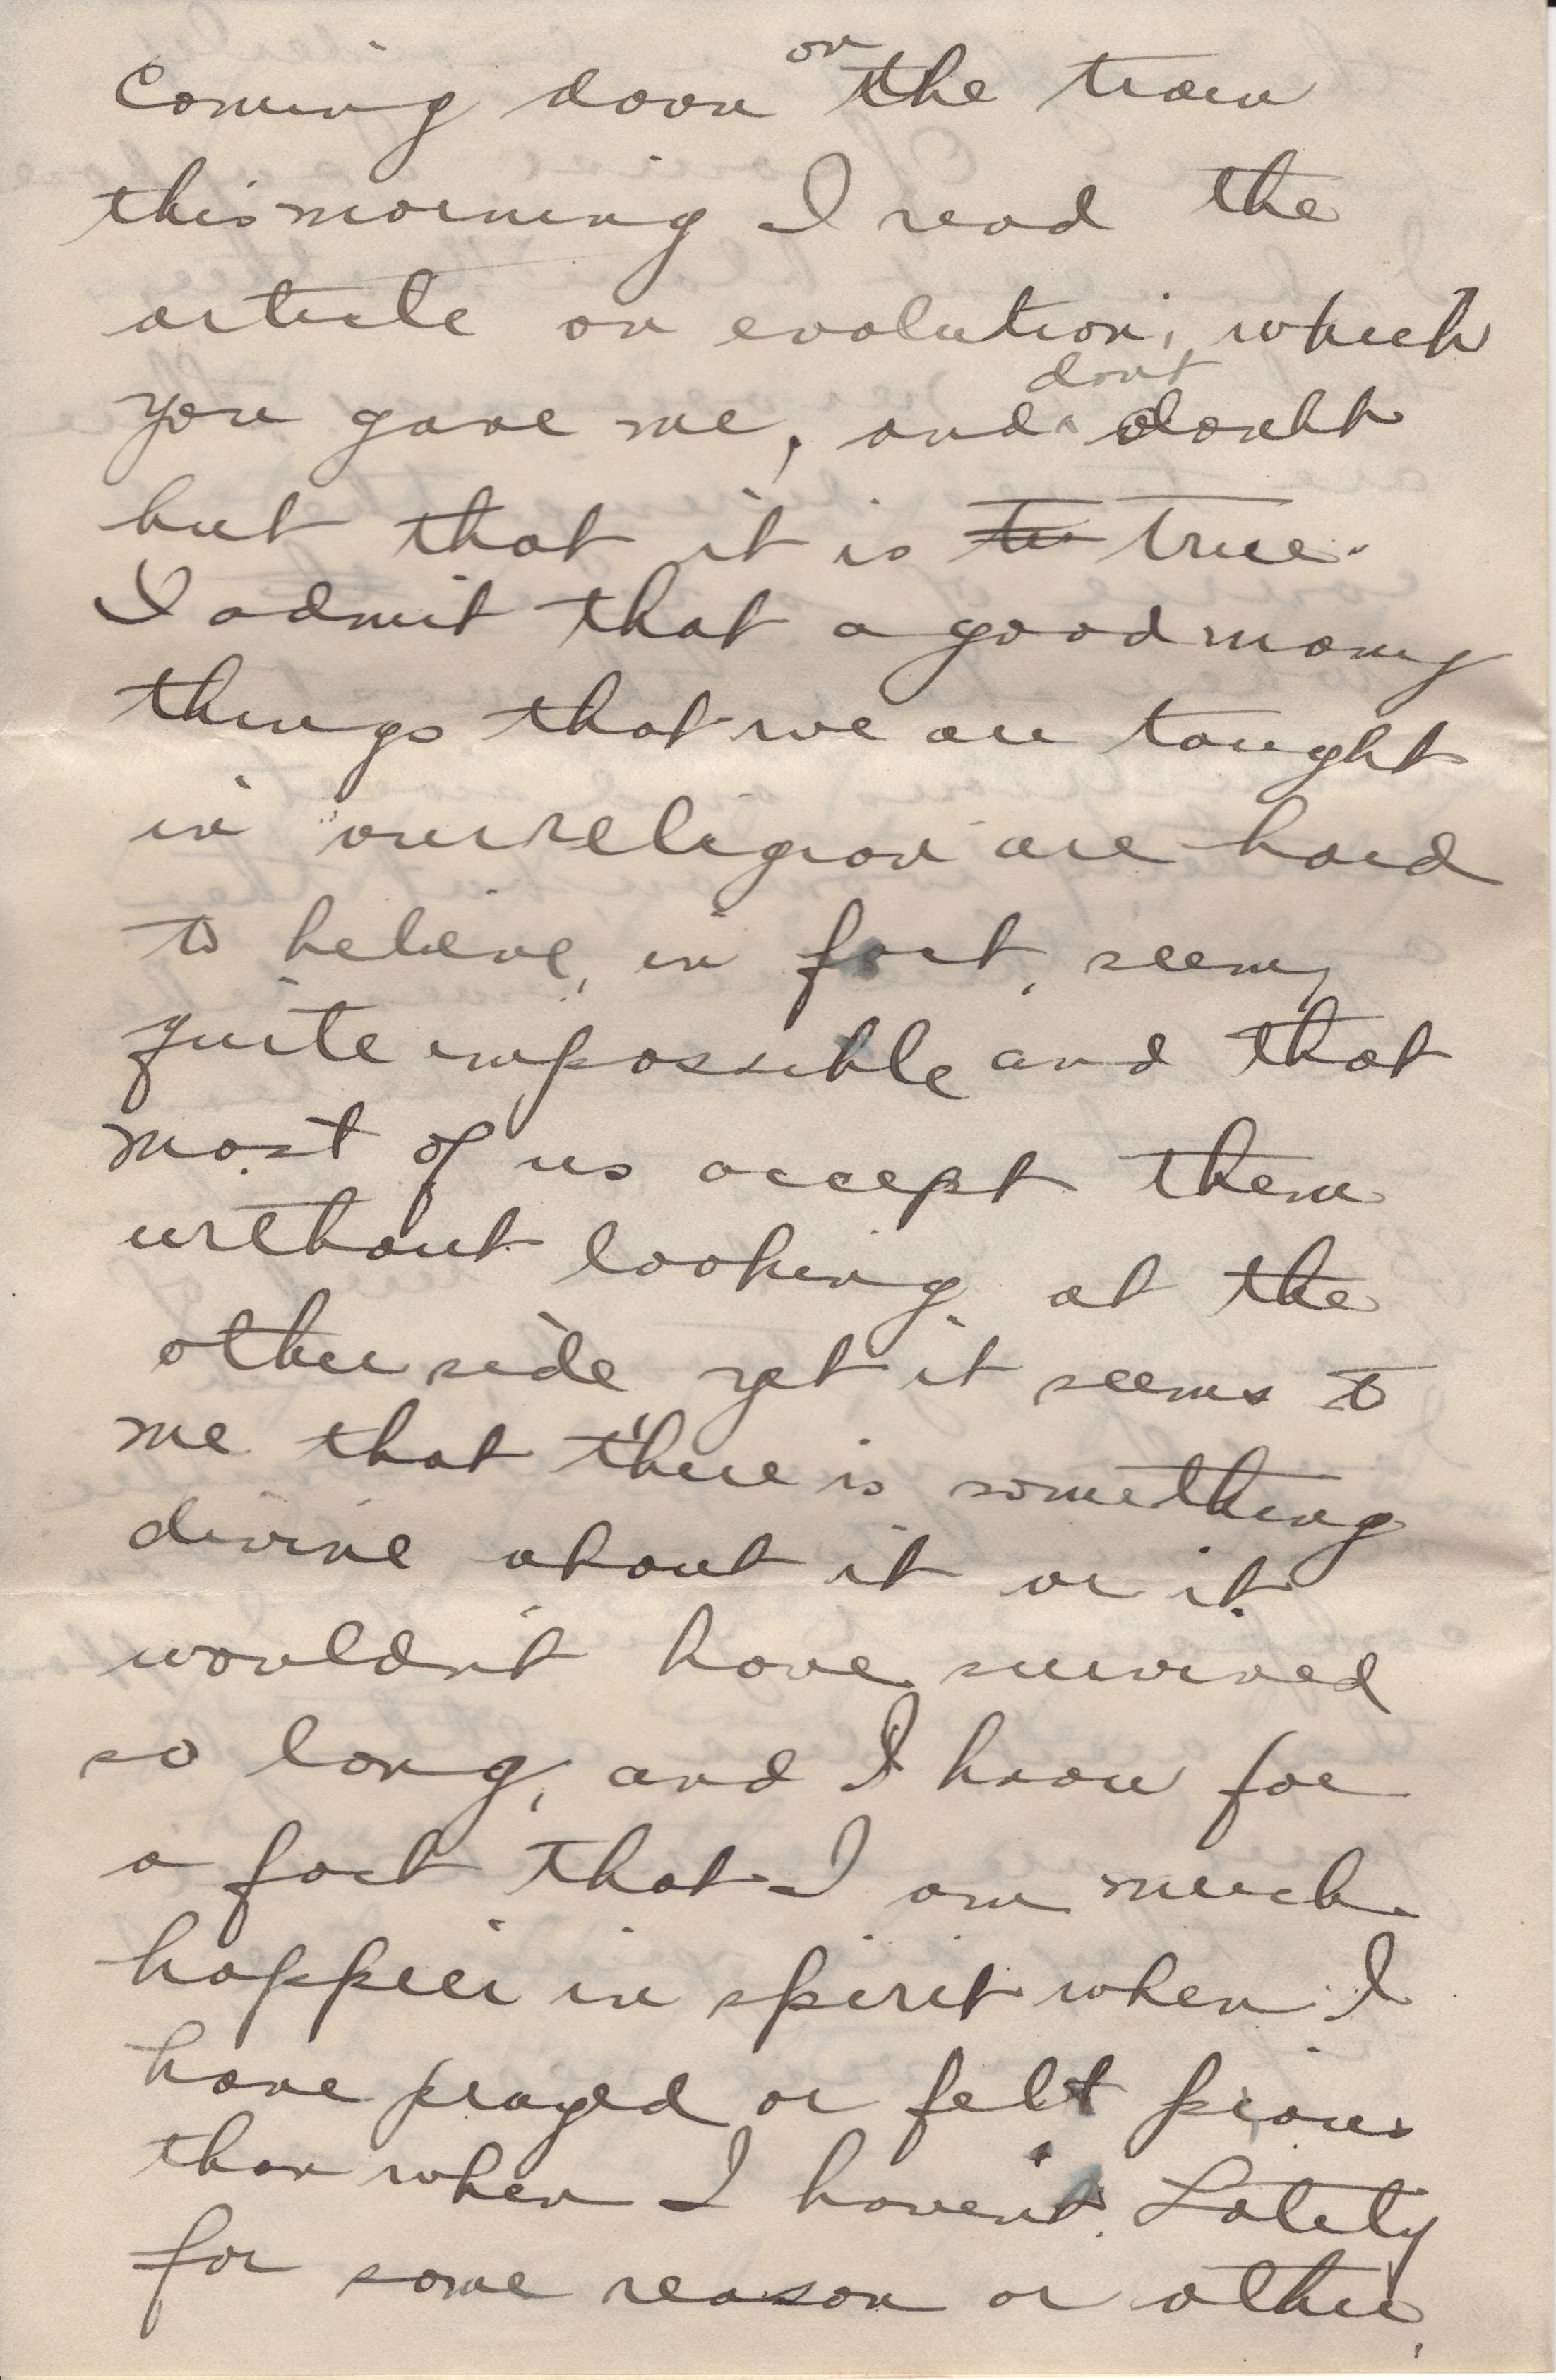 Coming down on the train
this morning I read the
article on evolution, which
you gave me, and dont doubt
but that it is to true.
I admit that a good many
things that we are taught
in our religion are hard
to believe, in fact, seem,
quite impossible and that
most of us accept them
without looking at the
other side yet it seems to
me that there is something
divine about it or it
wouldn't have survived
so long, and I know for
a fact that I am much
happier in spirit when I
have prayed or felt pious
than when I haven't. Lately
for some reason or other,